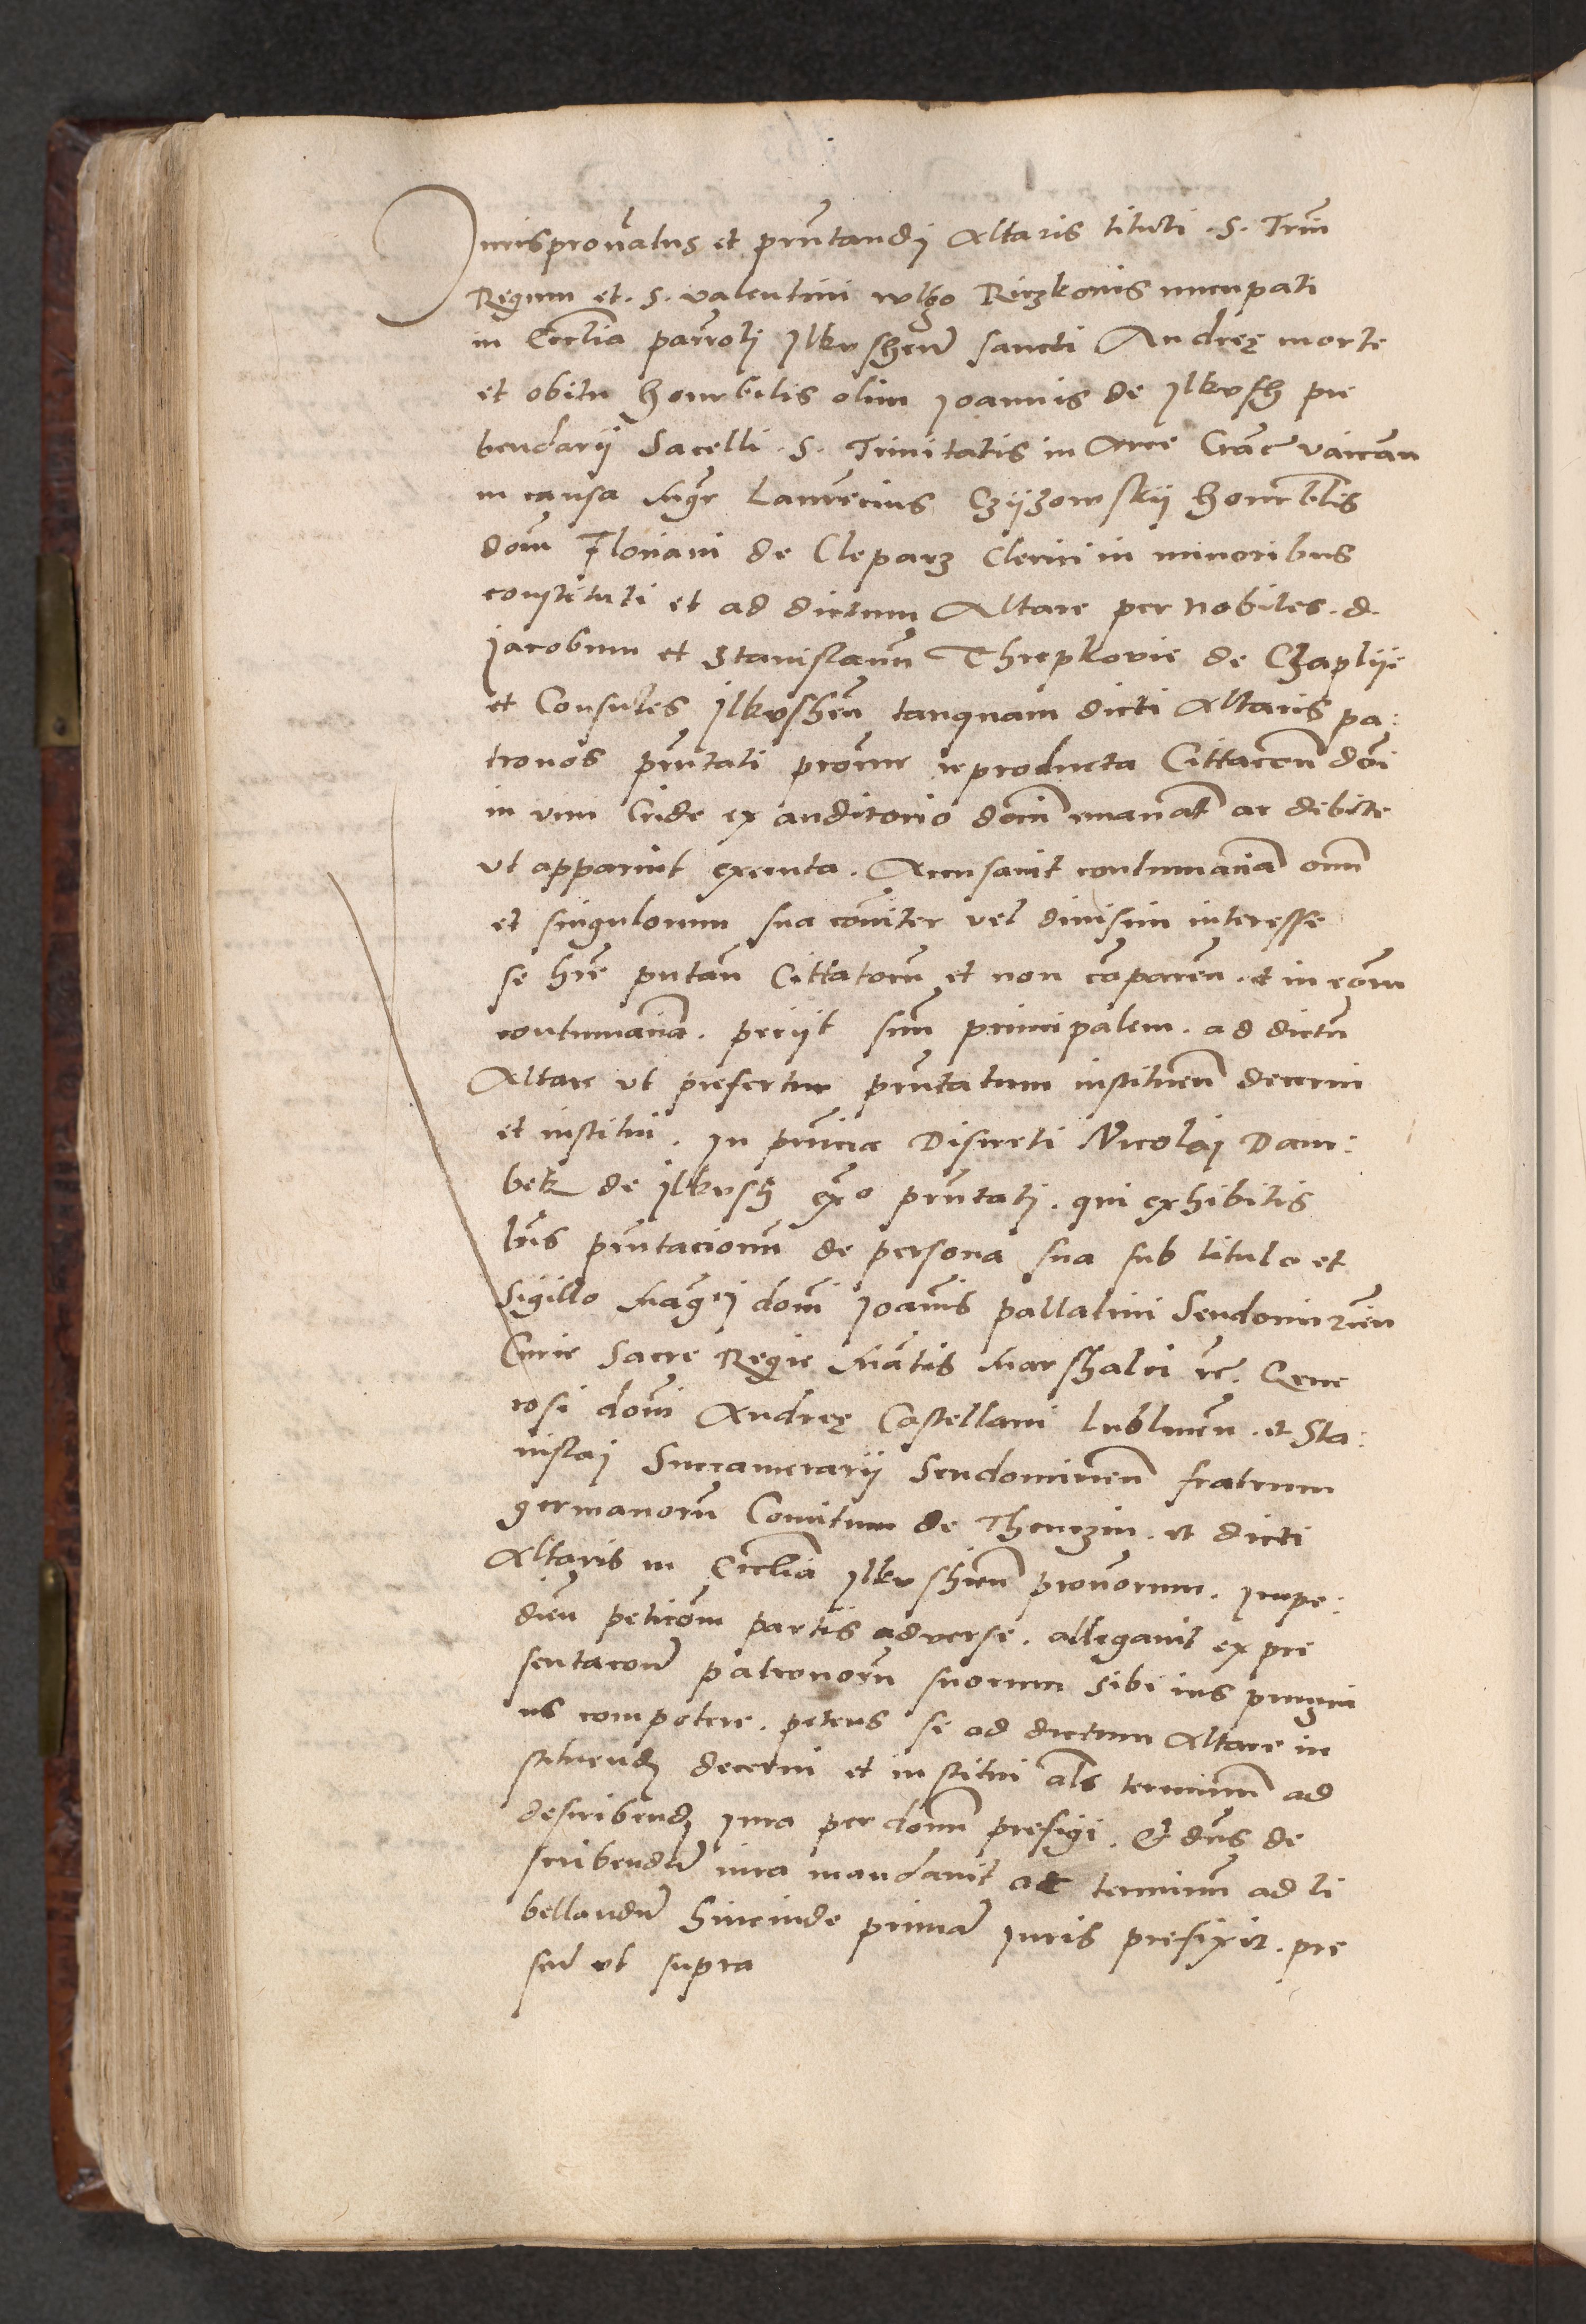 Jurispro͞natus et pr͞ntandj Altaris tituli . S . Triu͞m
Regum et . S . Valentini wlgo Riczkonis nucupati
in Ecclia parrolj Ilkvshen͞ sancti Andreę morte
et obitu honorbilis olim Joannis de Ilkvsh pre
bendarij Sacelli . S . Trinitatis in Arce Crac͞ vaican
in causa Mgr Laurencius Czÿzowskÿ honorblis
dom͞ Floriani de Cleparz Clerici in minoribus
constituti et ad dictum Altare per nobiles . d .
Jacobum et Stanislau͞m Threpkovie de Czaplije
et Consules Ilkvshen͞ tanquam dicti Altaris pa :
tronos pr͞ntati pro͞nur reproducta Cittacen͞ do͞ni
in vim Cride ex auditorio do͞ni emanat͞ ac debite
ut apparuit executa . Accusavit contumacia͞ om͞n
et singulorum sua co͞niter vel divisim interesse
se h͞re putan͞ Cittatoru͞ et non co͞paren͞ . et in eo͞rum
contumacia͞ . petijt suu͞m principalem . ad dictu͞
Altare ut prefertur pr͞ntatum instituen͞ decerni
et institui . In pr͞ncia Discreti Nicolaj Dam :
bek de Ilkvsh ex͞o pr͞ntatj . qui exhibitis
l͞ris pr͞ntacionu͞m de persona sua sub titulo et
Sigillo Mag͞cj dom͞ni Joa͞nis pallatini Sendomirien͞
Curie Sacre Regie Ma͞tis Marshalci et͞c . Gene
rosi do͞ni Andreę Castellani Lublinen͞ . et Sta :
nislaj Succamerarij Sendomirien͞ fratrum
germanoru͞ Comitum de Thenczin . et dicti
Altaris in Ecclia͞ Ilkvshien͞ pro͞norum . Impe :
dien͞ petico͞m partis adverse . allegavit ex pre
sentacon͞ patronoru͞ suorum sibi ius pinguiu
us competere . petens se ad dictum Altare in
stituend͞ decerni et institui al͞s terminu͞m ad
describend͞ Iura per do͞nu͞m prefigi . Et d͞ns de
scribendu͞ iura mandavit ac terminu͞m ad li
bellandu͞ hincinde prima͞ Iuris prefixit . pre
sen͞ ut supra